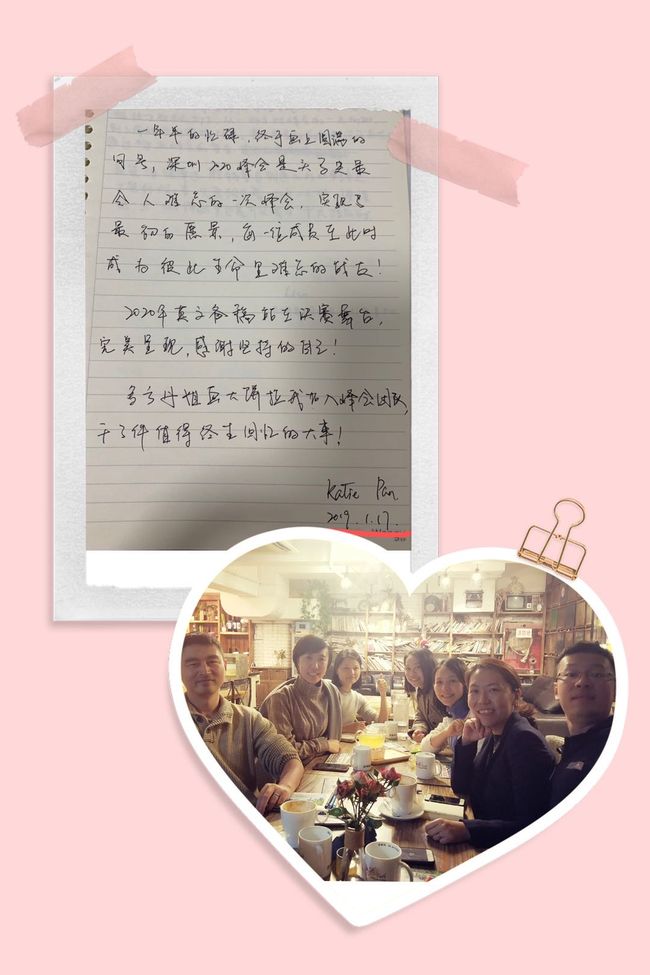 一年半的忙碌，终于画上圆满的
句号，深圳 峰会是头马史最
令人难忘的一次峰会，实现了
最初的愿景，每一位成员在此时
成为彼此生命里难忘的战友！
2020年英文备稿站在决赛舞台，
完美呈现，感谢坚持的自己！
多亏丹姐画大饼拉我加入峰会团队，
干了件值得终生回忆的大事！
Katie Pan
2019.1.17.